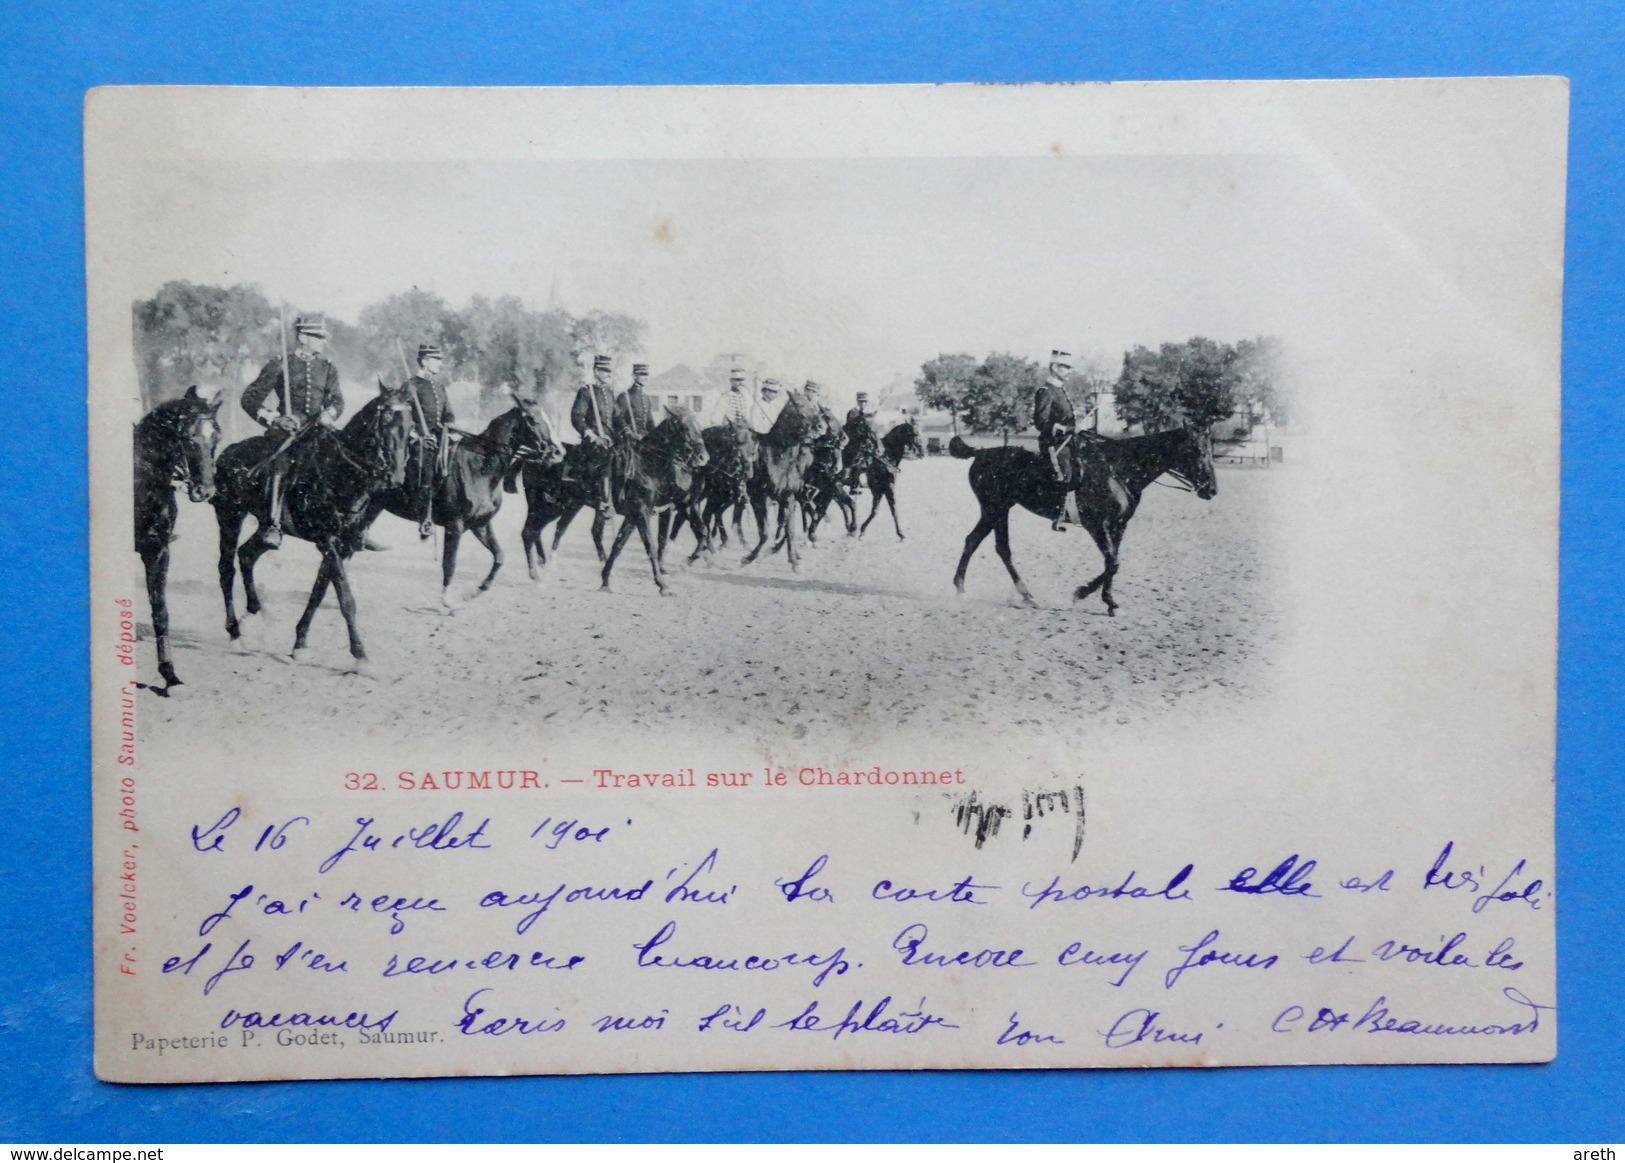 32. SAUMUR. — Travail sur le Chardonnet
Fr. Voelcker, photo Saumur, déposé
Le 16 Juillet 1901
J'ai reçu aujourd'hui ta carte postale elle est très joli
et je t'en remercie beaucoup. Encore cinq jours et voila les
vacances Ecris moi s'il te plâit ton Ami C de Beaumont
Papeterie P. Godet, Saumur.
delcampe.net
areth